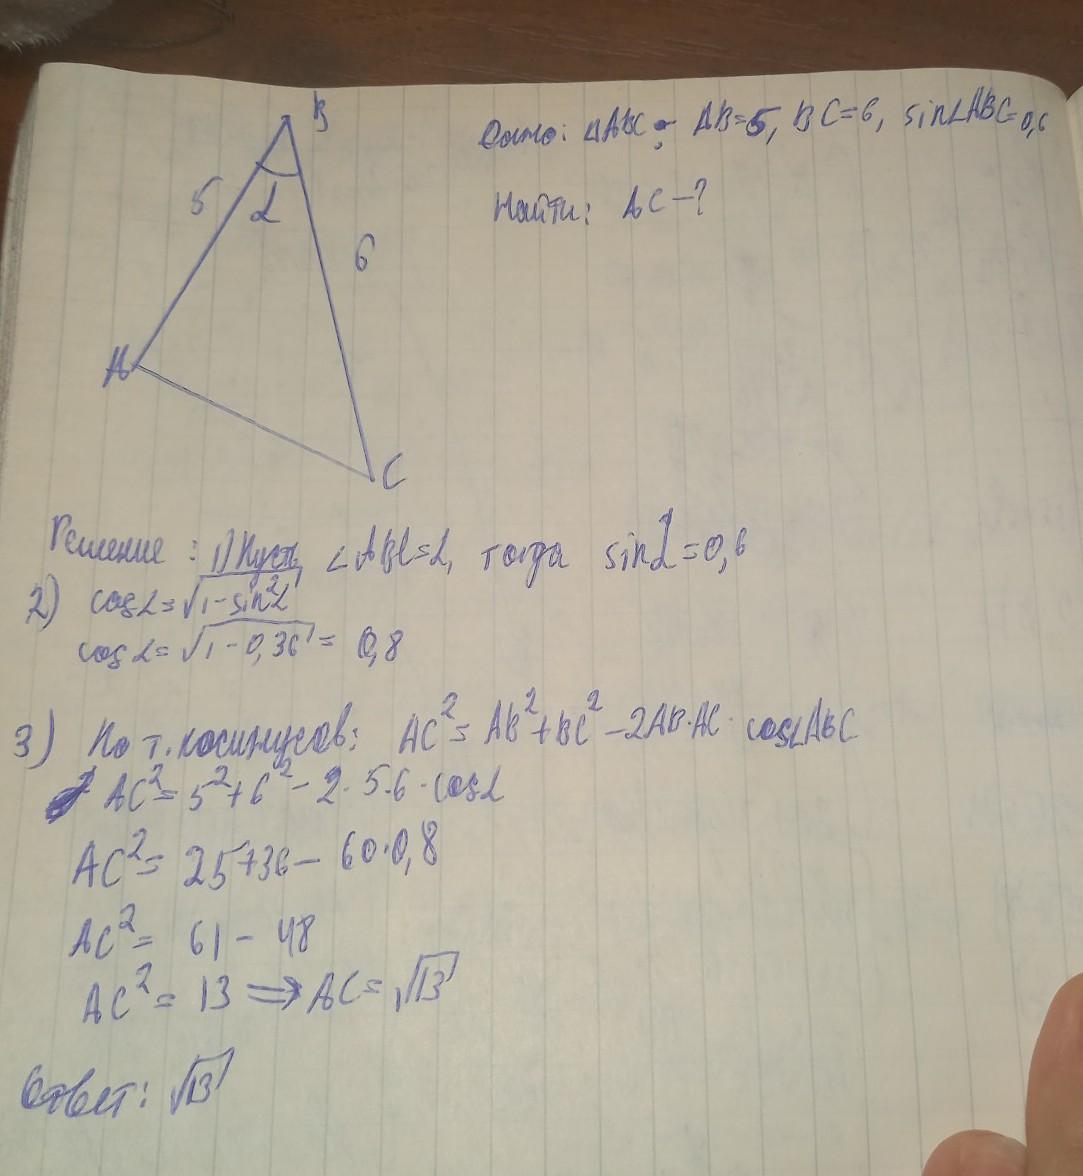 B
Дано: △ABC: AB=5, BC=6, sin∠ABC=0,6
5
α
Найти: AC-?
6
A
C
Решение: 1) Пусть ∠ABC=α, тогда sinα=0,6
2) cosα=√1-sin²α
cosα=√1-0,36 = 0,8
3) По т.косинусов: AC²=AB²+BC²-2AB·AC·cos∠ABC
AC²=5²+6²-2·5·6·cosα
AC²=25+36-60·0,8
AC²=61-48
AC²=13⇒AC=√13
Ответ: √13